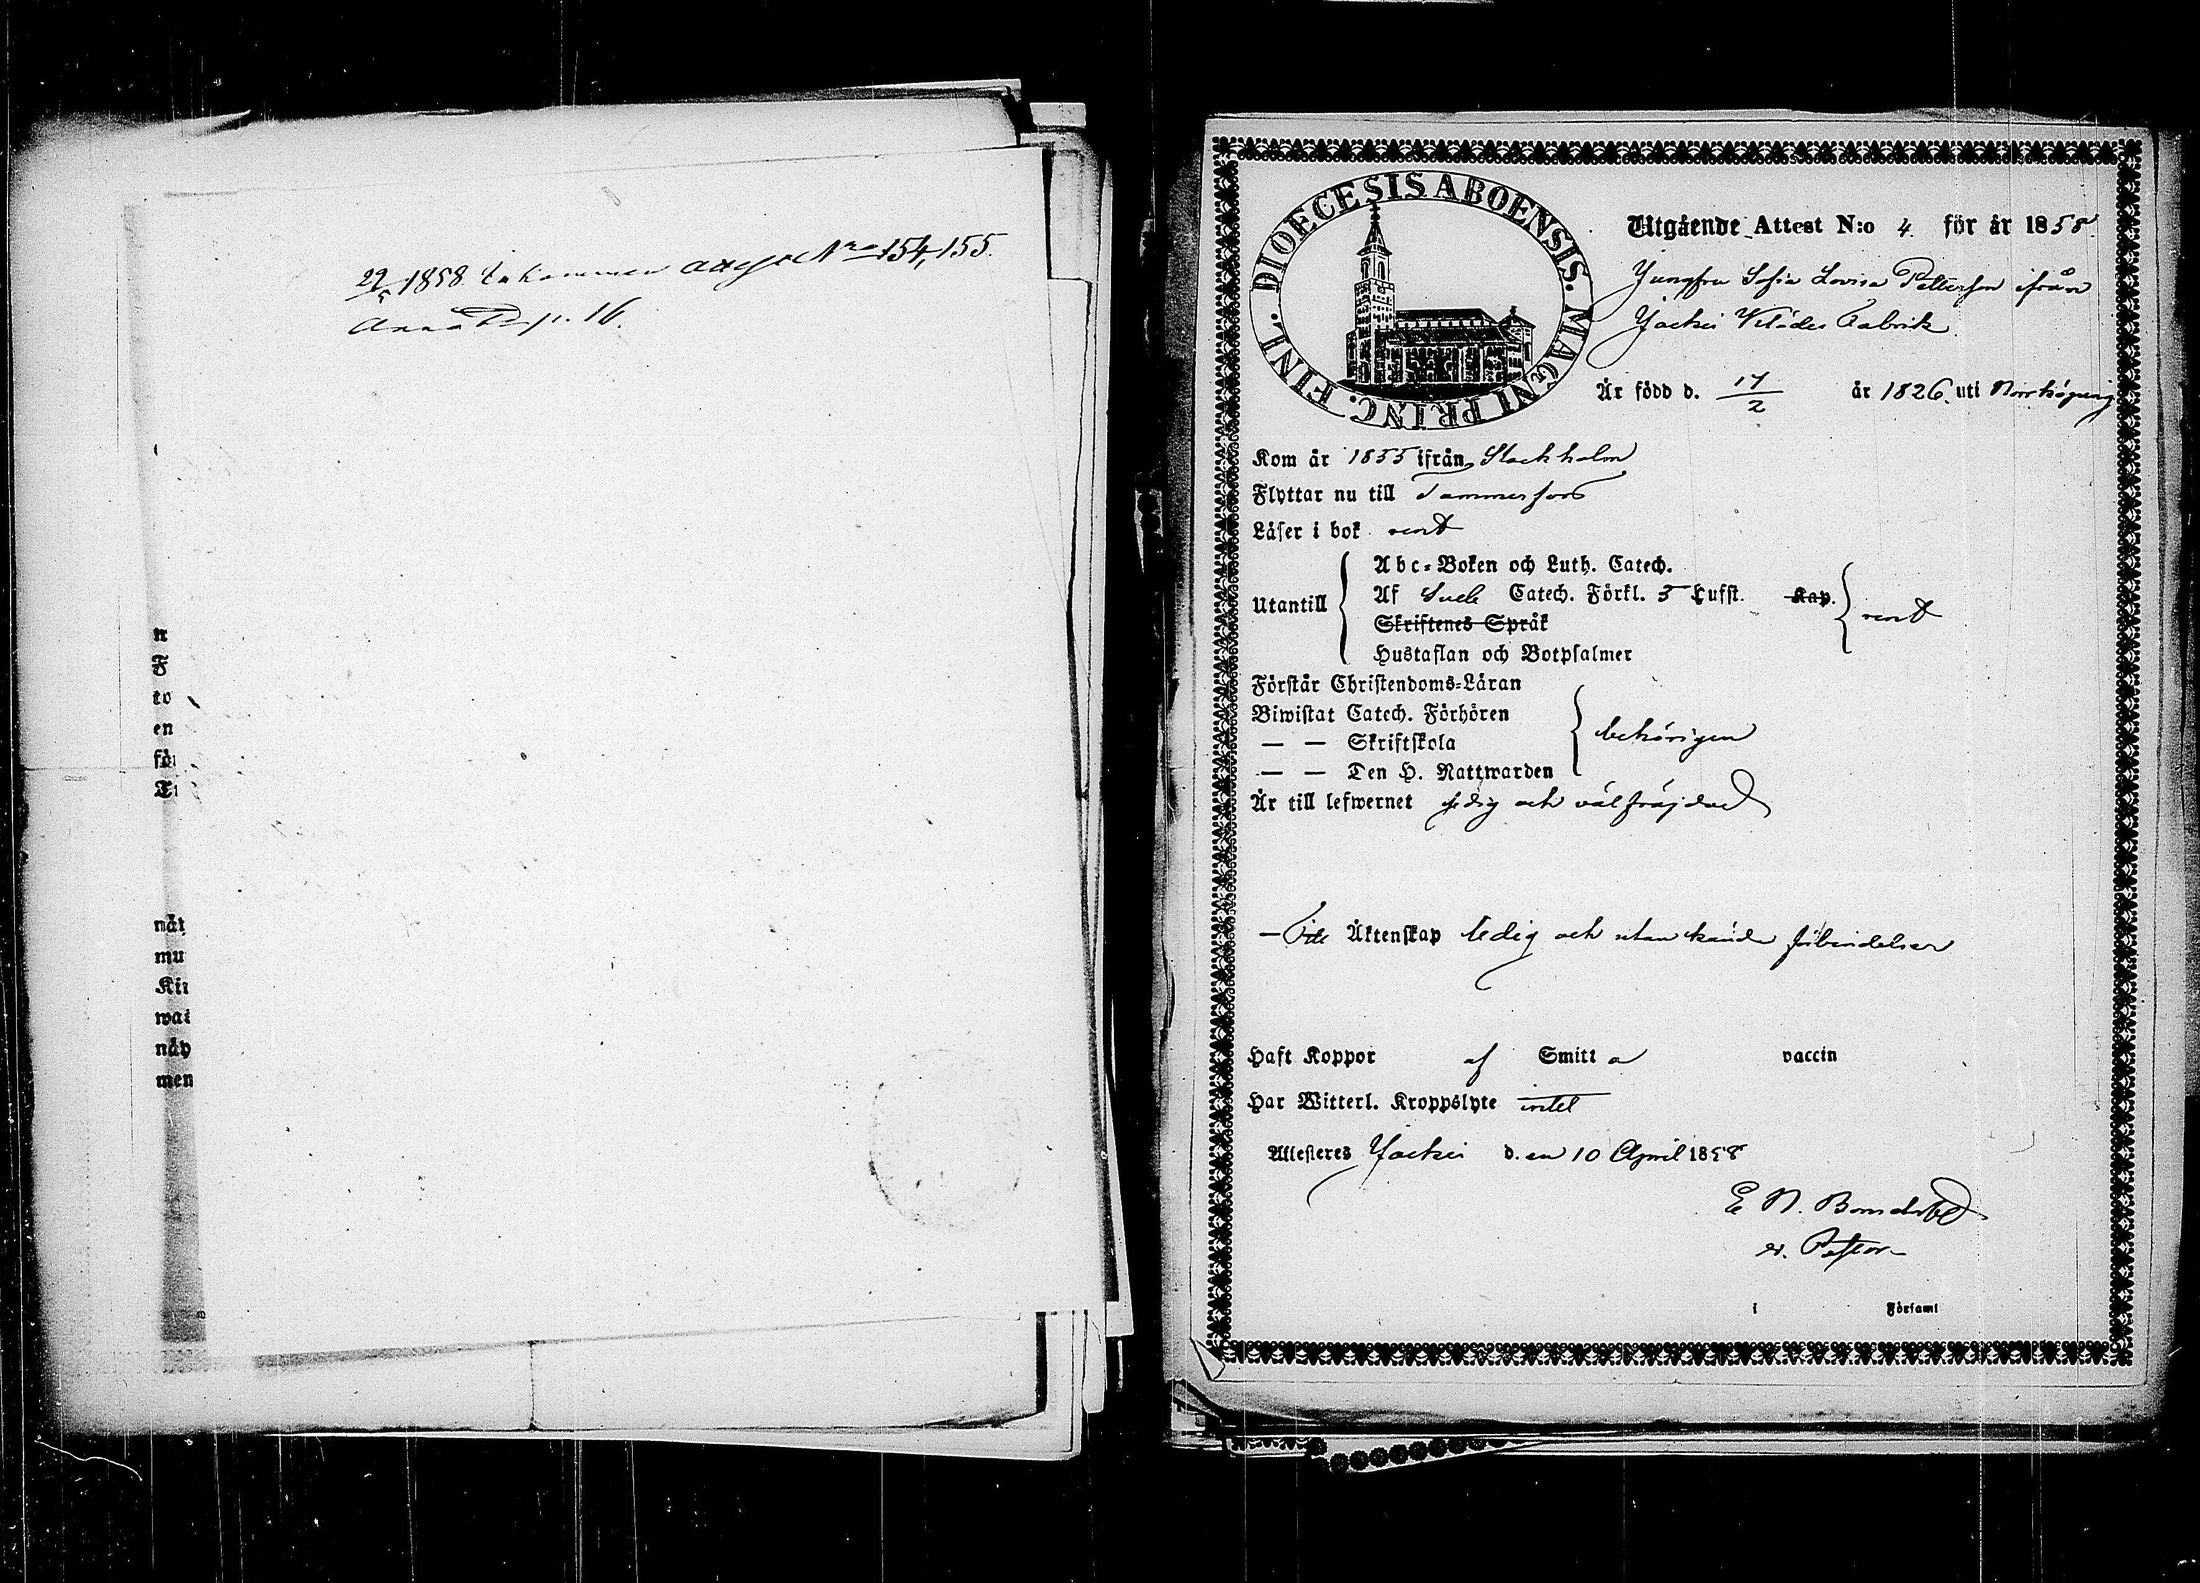 22/5 1858. Inkommen attest Nro 154, 155.
p. 16.
n
F
to
en
för
Ti
nät
mu
Kir
wat
näp
men
DIOECESIS ABOENSIS. MAGNI PRINC. FINL.
Utgående Attest N:o 4 för år 1858.
Jungfru Sofia Lovisa Petterson ifrån
Jockis Klädes Fabrik
Är född d. 17/2 år 1826. uti Norrköping
Kom år 1855 ifrån Stockholm
Flyttar nu till Tammerfors
Läser i bok rent
Abc-Boken och Luth. Catech.
Utantill Af Sveb. Catech. Förkl. 3 Hufst. Kap. rent
Skriftenes Språk
Hustaflan och Botpsalmer
Förstår Christendoms-Läran
Biwistat Catech. Förhören behörigen
— — Skriftskola
— — Den H. Nattwarden
Är till lefwernet sedig och välfräjdad
— Till Äktenskap ledig och utan kända förbindelser
Haft Koppor af Smitta vaccin
Har Witterl. Kroppslyte intet
Attesteres Jockis d. en 10 April 1858
E N. Bonsdorff
v. Pastor
i Församl